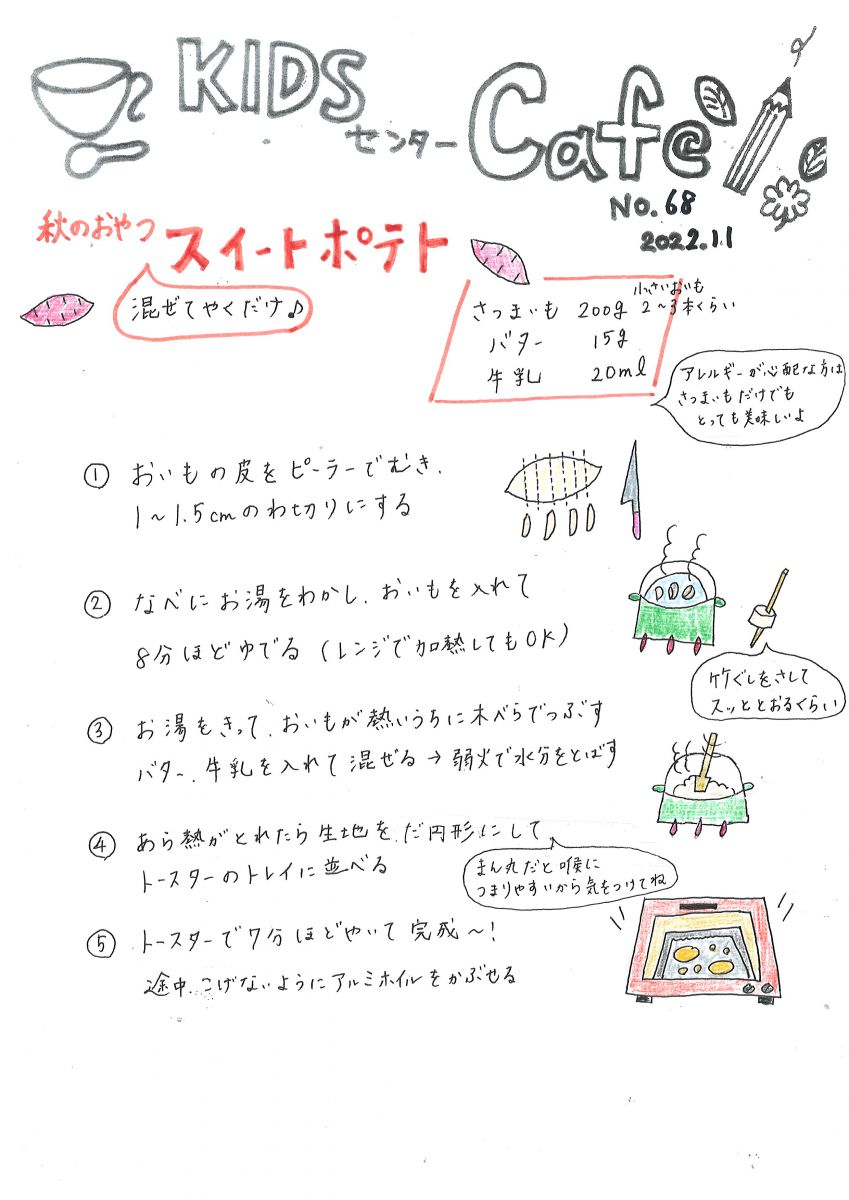 KIDS
センター Cafe
No.68
2022.11
秋のおやつ スイートポテト
混ぜてやくだけ♪
さつまいも 200g 小さいおいも 2～3本くらい
バター 15g
牛乳 20ml
アレルギーが心配な方は
さつまいもだけでも
とっても美味しいよ
① おいもの皮をピーラーでむき、
1～1.5cmのわ切りにする
② なべにお湯をわかし、おいもを入れて
8分ほどゆでる（レンジで加熱してもOK）
竹ぐしをさして
スッととおるぐらい
③ お湯をきって、おいもが熱いうちに木べらでつぶす
バター、牛乳を入れて混ぜる→弱火で水分をとばす
④ あら熱がとれたら生地をだ円形にして
トースターのトレイに並べる
まん丸だと喉に
つまりやすいから気をつけてね
⑤ トースターで7分ほどやいて完成～！
途中、こげないようにアルミホイルをかぶせる